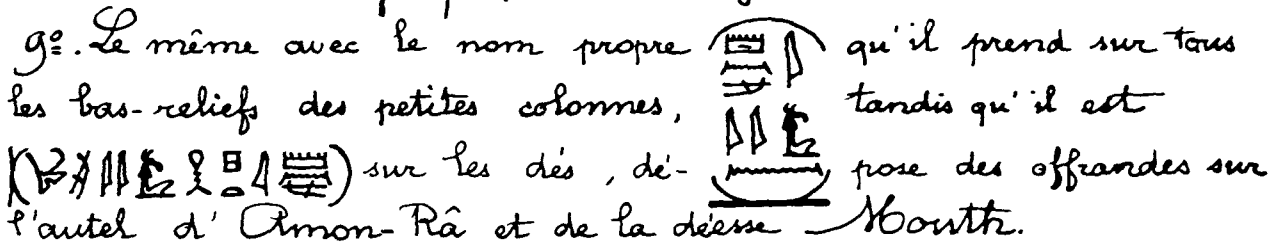 9º. Le même avec le nom propre qu'il prend sur tous
les bas-reliefs des petites colonnes, tandis qu'il est
sur les dés, dé- pose des offrandes sur
l'autel d'Amon-Râ et de la déesse Mouth.